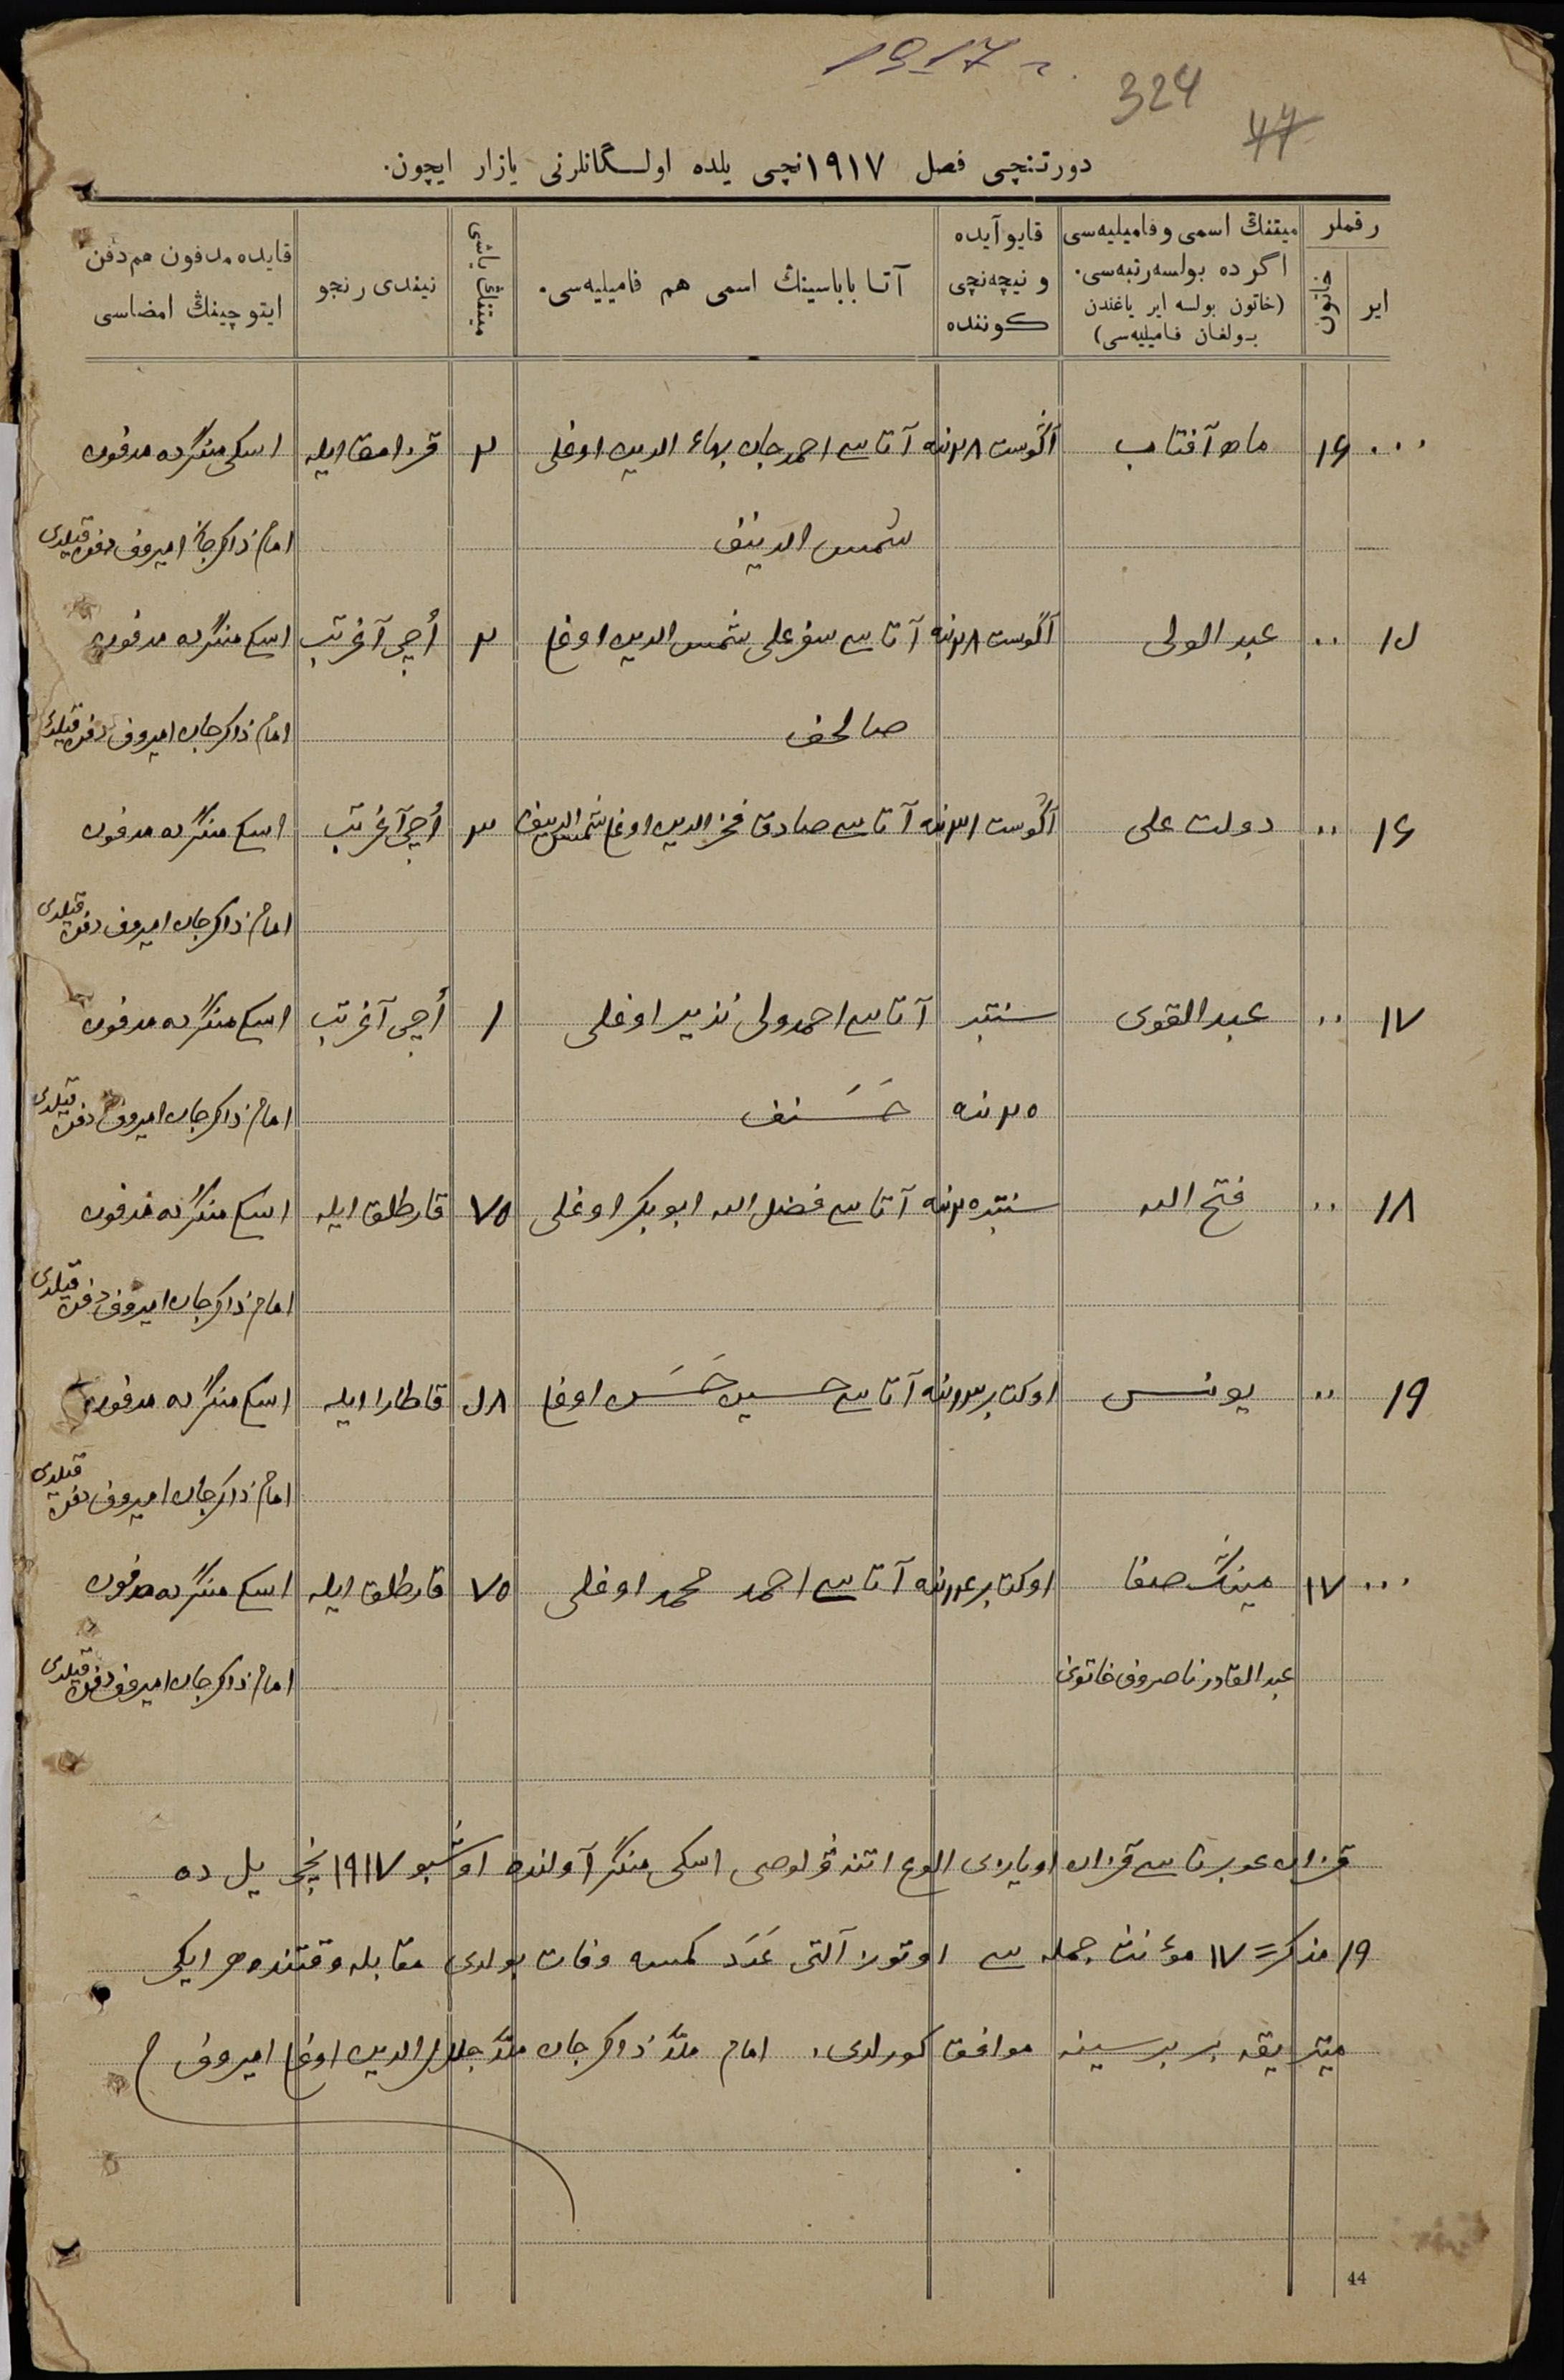 1917 г.
324
44
دورتنچی فصل ۱۹۱۷نچی یلده اولــگانلرنی یازار ایچون.
رقملر
ایر
خاتون
میتنڭ اسمی وفامیلیه‌سی
اگر ده بولسه رتبه‌سی.
(خاتون بولسه ایر یاغندن
بـولغان فـامیلیه‌سی)
قایو آیده
و نیچه‌نچی
کوننده
آتـا بابـاسینڭ اسمی هم فامیلیه‌سی.
میتنڭ یاشی
نیندی رنجو
قایده مدفون هم دفن
ایتوچینڭ امضاسی
... ۱۶ ماه آفتاب آگوست ۲۸نه آتاسی احمدجان بهاء الدین اوغلی ۲ قزامق ایله اسکی منگرده مدفون
شمس الدینف امام ذاکرجان امیروف دفن قیلدی
۱۵ .. عبد الولی آگوست ۲۸نه آتاسی سفرعلی شمس الدین اوغلی ۲ أچی آغرتب اسکی منگرده مدفون
صالحف امام ذاکرجان امیروف دفن قیلدی
۱۶ .. دولت علی آگوست ۳۱نه آتاسی صادق فخر الدین اوغلی شمس الدینف ۳ أچی آغرتب اسکی منگرده مدفون
امام ذاکرجان امیروف دفن قیلدی
۱۷ .. عبد القوی سنتبر آتاسی احمدولی نذیر اوغلی ۱ أچی آغرتب اسکی منگرده مدفون
۲۵نه حَسَنف امام ذاکرجان امیروف دفن قیلدی
۱۸ .. فتح الله سنتبر ۲۵نه آتاسی فضل الله ابوبکر اوغلی ۷۵ قارطلق ایله اسکی منگرده مدفون
امام ذاکرجان امیروف دفن قیلدی
۱۹ .. یونس اوکتابر ۱۳نه آتاسی حسین حَسَن اوغلی ۵۸ قاطار ایله اسکی منگرده مدفون
امام ذاکرجان امیروف دفن قیلدی
... ۱۷ مینگ صفا اوکتابر ۱۴نه آتاسی احمد محمد اوغلی ۷۵ قارطلق ایله اسکی منگرده مدفون
عبد القادر ناصروف خاتونی امام ذاکرجان امیروف دفن قیلدی
قزان غوبرناسی قزان اویازی الوغ اتنه ولوصی اسکی منگر آولنده اوشبو ۱۹۱۷نچی یل ده
۱۹ مذکر = ۱۷ مؤنث جمله سی اوتوز آلتی عَدَد کمسه وفات بولدی مقابله وقتنده هر ایکی
میتریقه بر برسینه موافق کورلدی. امام ملّا ذاکرجان ملّا جلال الدین اوغلی امیروف
44